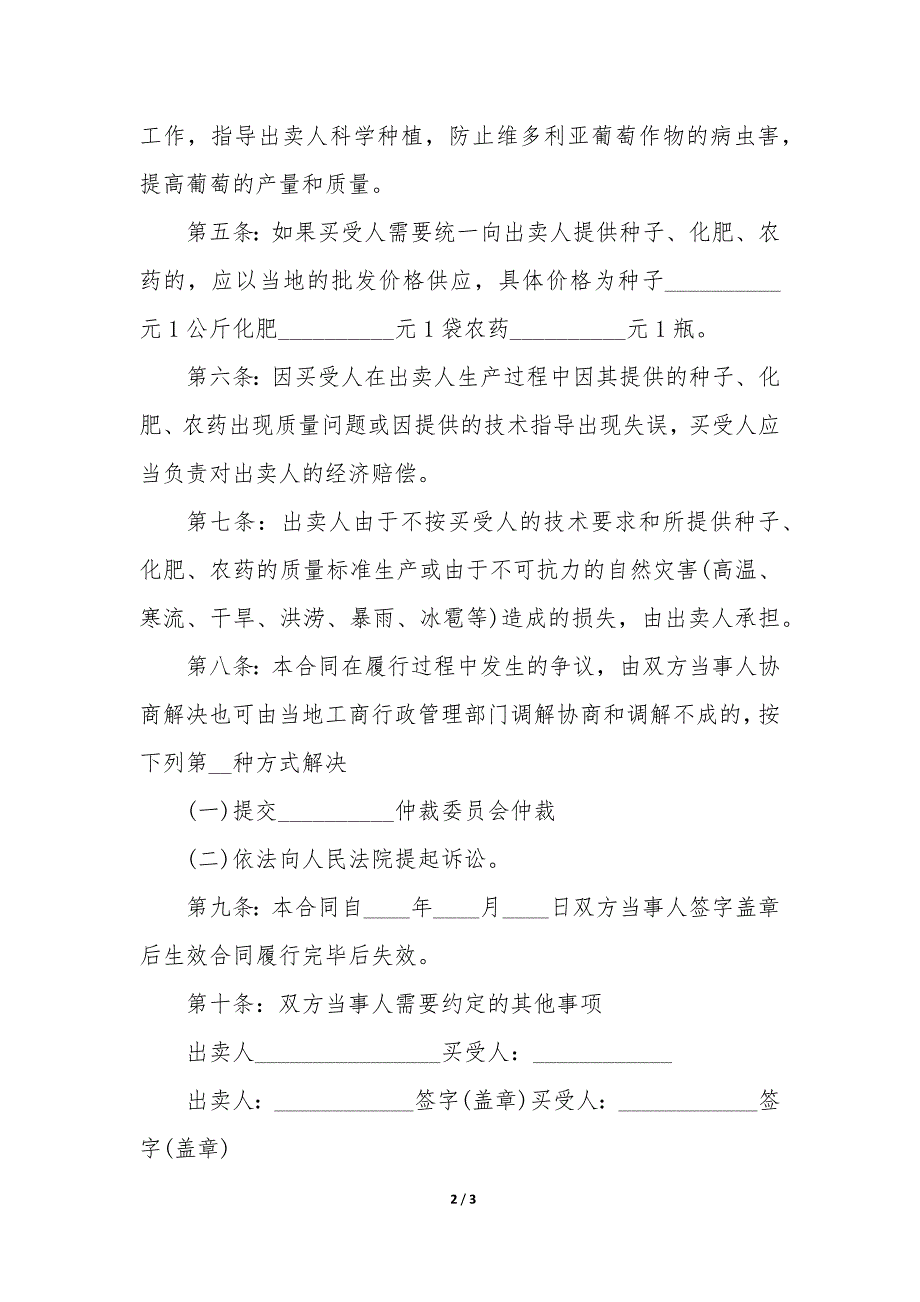 工作，指导出卖人科学种植，防止维多利亚葡萄作物的病虫害，
提高葡萄的产量和质量。
第五条：如果买受人需要统一向出卖人提供种子、化肥、农
药的，应以当地的批发价格供应，具体价格为种子__________
元1公斤化肥__________元1袋农药__________元1瓶。
第六条：因买受人在出卖人生产过程中因其提供的种子、化
肥、农药出现质量问题或因提供的技术指导出现失误，买受人应
当负责对出卖人的经济赔偿。
第七条：出卖人由于不按买受人的技术要求和所提供种子、
化肥、农药的质量标准生产或由于不可抗力的自然灾害(高温、
寒流、干旱、洪涝、暴雨、冰雹等)造成的损失，由出卖人承担。
第八条：本合同在履行过程中发生的争议，由双方当事人协
商解决也可由当地工商行政管理部门调解协商和调解不成的，按
下列第__种方式解决
(一)提交__________仲裁委员会仲裁
(二)依法向人民法院提起诉讼。
第九条：本合同自____年____月____日双方当事人签字盖章
后生效合同履行完毕后失效。
第十条：双方当事人需要约定的其他事项
出卖人________________买受人：____________
出卖人：____________签字(盖章)买受人：____________签
字(盖章)
2 / 3